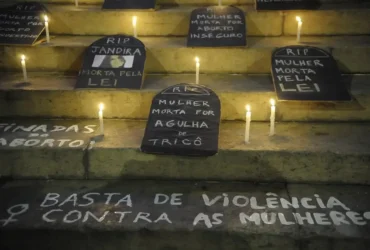 RIP
MULHER
MORTA POR
ABORTO
INSEGURO
RIP
JANDIRA
MORTA PELA
LEI
RIP
MULHER
MORTA
PELA
LEI
RIP
MULHER
MORTA POR
AGULHA
DE
TRICÔ
ABORTO
BASTA DE VIOLÊNCIA
CONTRA AS MULHERES